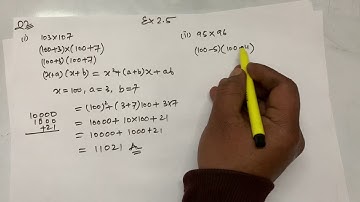 Ex 2.5
(i) 103×107
(100+3)×(100+7)
(100+3)(100+7)
(x+a)(x+b) = x²+(a+b)x+ab
x = 100, a = 3, b = 7
= (100)²+(3+7)100+3×7
= 10000+10×100+21
= 10000+1000+21
= 11021
10000
1000
+21
(ii) 95×96
(100-5)(100-4)